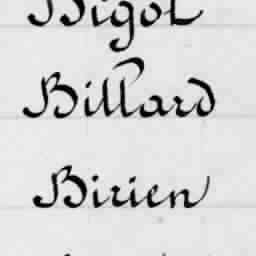 Bigot
Billard
Birien